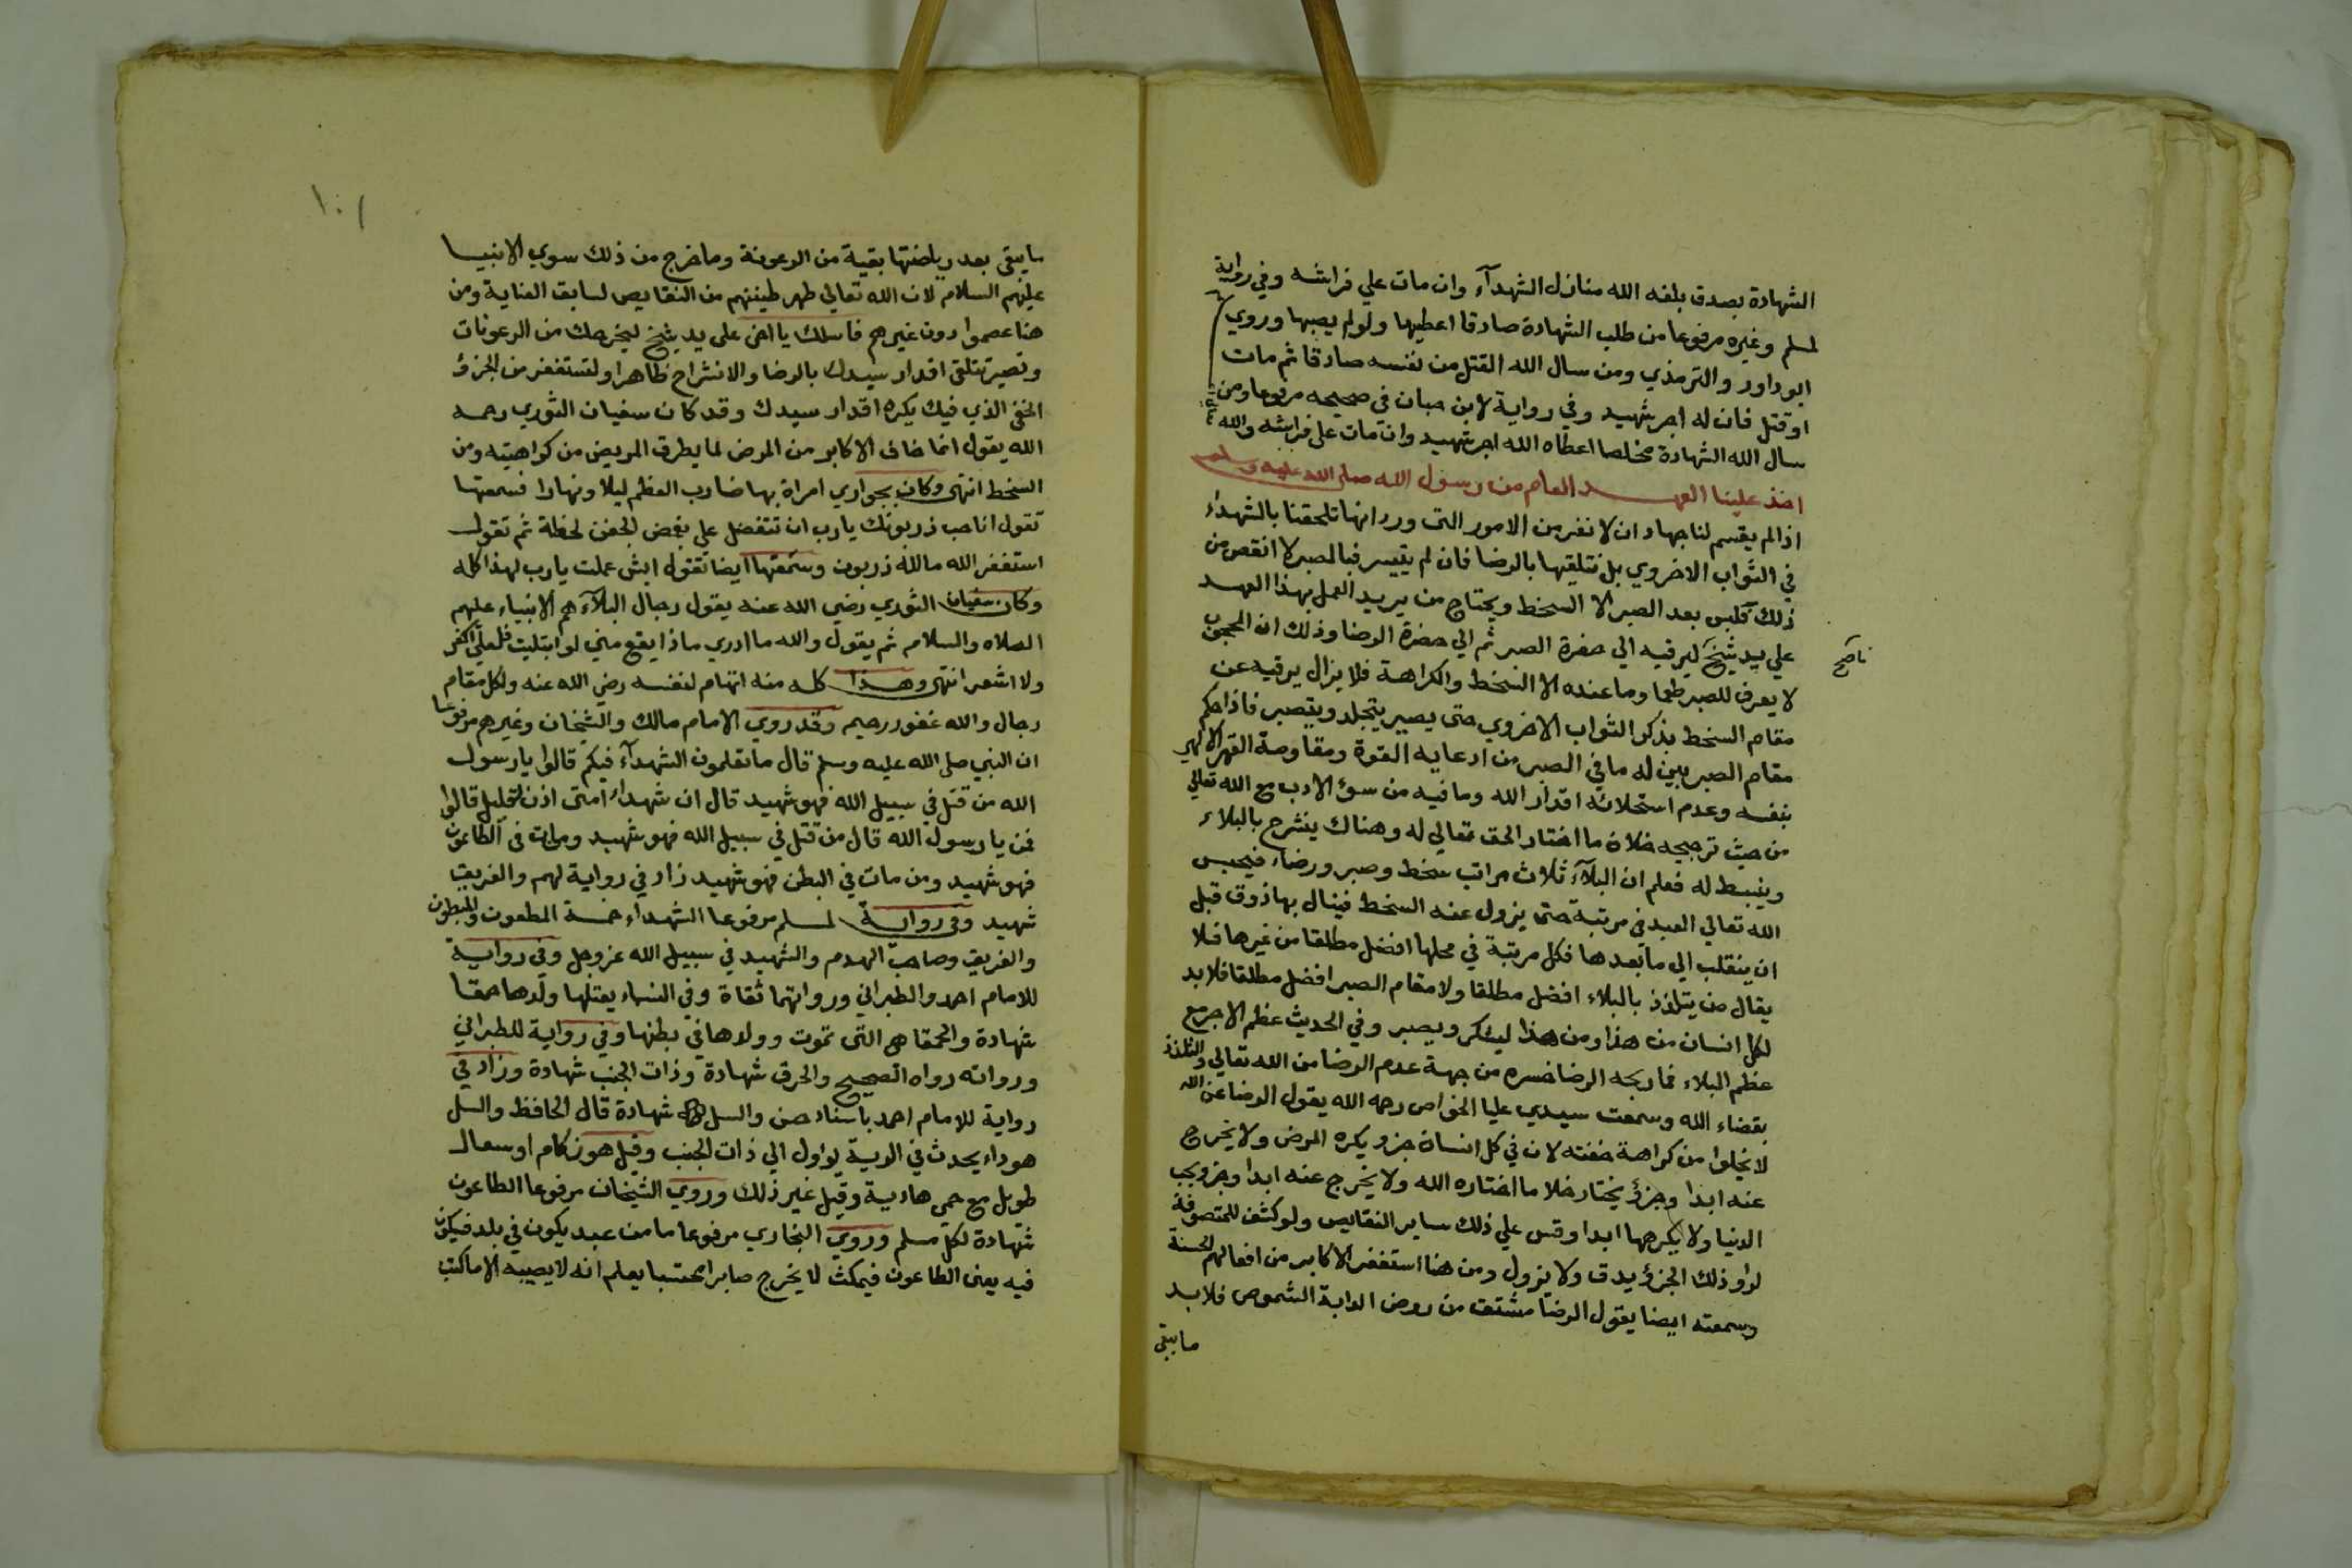 الشهادة بصدق بلغه الله منازل الشهدآء وان مات علي فراشه وفي رواية
لمسلم وغيره مرفوعا من طلب الشهادة صادقا اعطيها ولو لم يصبها وروي
ابو داود والترمذي ومن سال الله القتل من نفسه صادقا ثم مات
او قتل فان له اجر شهيد وفي رواية لابن حبان في صحيحه مرفوعا ومن
سال الله الشهادة مخلصا اعطاه الله اجر شهيد وان مات علي فراشه والله
اخذ علينا العهد العام من رسول الله صلى الله عليه وسلم
اذا لم يقسم لنا جهاد ان لا نفر من الامور التي ورد انها تلحقنا بالشهداء
في الثواب الاخروي بل نتلقيها بالرضا فان لم يتيسر فبالصبر لا انقص من
ذلك فليس بعد الصبر الا السخط ويحتاج من يريد العمل بهذا العهد
علي يد شيخ ليرقيه الي حضرة الصبر ثم الي حضرة الرضا وذلك ان المحجوب
ناصح
لا يعرف للصبر طعما وما عنده الا السخط والكراهة فلا يزال يرقيه عن
مقام السخط بذكر الثواب الاخروي حتي يصير يتجلد ويتصبر فاذا حكم
مقام الصبر بين له ما في الصبر من ادعايه القوة ومقاومة القهر الالهي
بنفسه وعدم استحلائه اقدار الله وما فيه من سوء الادب مع الله تعالي
من حيث ترجيحه خلاف ما اختار الحق تعالي له وهناك ينشرح بالبلاء
وينبسط له فعلم ان البلآء ثلاث مراتب سخط وصبر ورضاء فيحبس
الله تعالي العبد في مرتبة حتي يزول عنه السخط فينال بها ذوق قبل
ان ينقلب الي ما بعدها فكل مرتبة في محلها افضل مطلقا من غيرها فلا
يقال من يتلذذ بالبلاء افضل مطلقا ولا مقام الصبر افضل مطلقا فلا بد
لكل انسان من هذا ومن هذا ليشكر ويصبر وفي الحديث عظم الاجر مع
عظم البلاء فما ربحه الرضا خسره من جهة عدم الرضا من الله تعالي والتلذذ
بقضاء الله وسمعت سيدي عليا الخواص رحمه الله يقول الرضا عن الله
لا يخلوا من كراهة خفته لان في كل انسان جزو يكره المرض ولا يخرج
عنه ابدا وجزؤ يختار خلا ما اختاره الله ولا يخرج عنه ابدا وجزو يحب
الدنيا ولا يكرهها ابدا وقس علي ذلك ساير النقايص ولو كشف للمتصوفة
لراو ذلك الجزؤ يدق ولا يزول ومن هنا استغفر الاكابر من افعالهم الحسنة
وسمعته ايضا يقول الرضا مشتق من روض الدابة الشموص فلا بد
ما يبقي
١٠١
ما يبقي بعد رياضتها بقية من الرعونة وما خرج من ذلك سوي الانبيا
عليهم السلام لان الله تعالي طهر طينتهم من النقايص لسابق العناية ومن
هنا عصموا دون غيرهم فاسلك يا اخي على يد شيخ ليخرجك من الرعونات
وتصير تتلقي اقدار سيدك بالرضا والانشراح ظاهرا ولتستغفر من الجزؤ
الخفي الذي فيك يكره اقدار سيدك وقد كان سفيان الثوري رحمه
الله يقول انما خاف الاكابر من المرض لما يطرق المريض من كراهيته ومن
السخط انتهى وكان بجواري امراة بها ضارب العظم ليلا ونهارا فسمعتها
تقول انا حب ذربونك يا رب ان تتفضل علي بغمض الجفن لحظة ثم تقول
استغفر الله مالله ذربون وسمعتها ايضا تقول ايش عملت يا رب لهذا كله
وكان سفيان الثوري رضي الله عنه يقول رجال البلآء هم الانبياء عليهم
الصلاه والسلام ثم يقول والله ما ادري ماذا يقع مني لو ابتليت فلعلي اكفر
ولا اشعر انتهي وهذا كله منه اتهام لنفسه رضي الله عنه ولكل مقام
رجال والله غفور رحيم وقد روي الامام مالك والشيخان وغيرهم مرفوعا
ان النبي صلى الله عليه وسلم قال ما تعلمون الشهدآء فيكم قالوا يا رسول
الله من قتل في سبيل الله فهو شهيد قال ان شهداء امتى اذن لقليل قالوا
فمن يا رسول الله قال من قتل في سبيل الله فهو شهيد ومن مات في الطاعون
فهو شهيد ومن مات في البطن فهو شهيد زاد في رواية لهم والغريق
شهيد وفي رواية لمسلم مرفوعا الشهداء خمسة المطعون والمبطون
والغريق وصاحب الهدم والشهيد في سبيل الله عز وجل وفي رواية
للامام احمد والطبراني ورواتهما ثقاة وفي النساء يقتلها ولدها حمقا
شهادة والحمقا هي التي تموت وولدها في بطنها وفي رواية للطبراني
ورواته رواه الصحيح والحرق شهادة وذات الجنب شهادة وزاد في
رواية للامام احمد باسناد حسن والسل شهادة قال الحافظ والسل
هو داء يحدث في الرية يؤول الي ذات الجنب وقيل هو زكام او سعال
طويل مع حمي هادية وقيل غير ذلك وروي الشيخان مرفوعا الطاعون
شهادة لكل مسلم وروي البخاري مرفوعا ما من عبد يكون في بلد فيكون
فيه يعني الطاعون فيمكث لا يخرج صابرا محتسبا يعلم انه لا يصيبه الا ما كتب